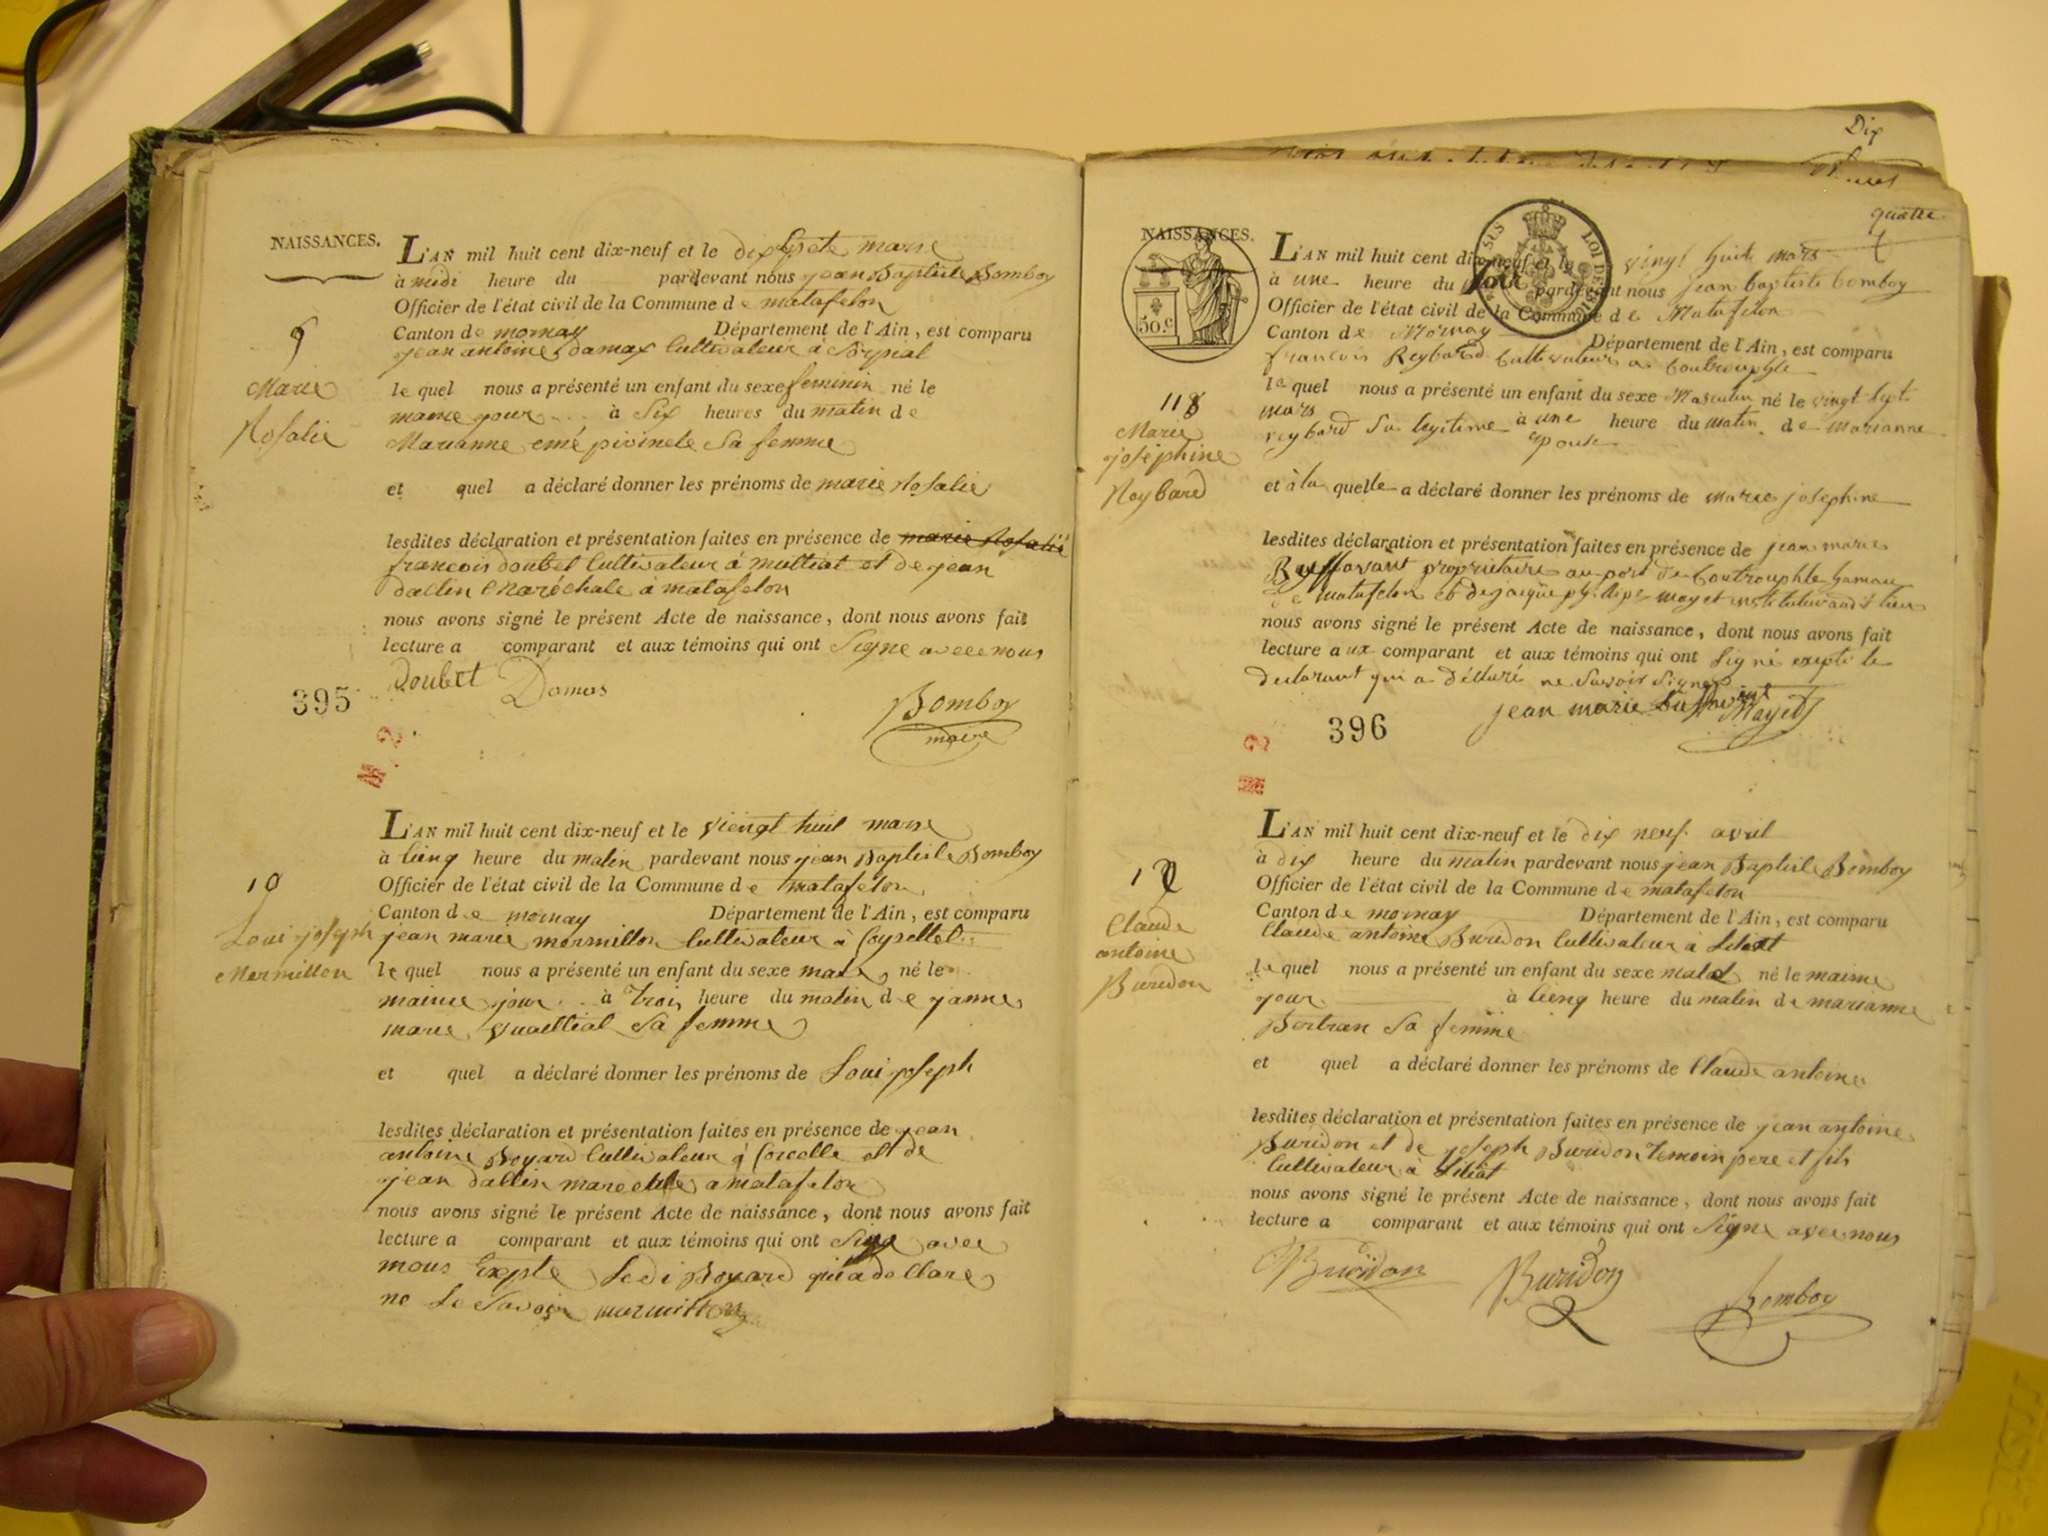 NAISSANCES.
L'AN mil huit cent dix-neuf et le dix septe mars
à midi heure du pardevant nous jean Baptiste Bomboy
Officier de l'état civil de la Commune de matafelon
Canton de mornay Département de l'Ain, est comparu
jean antoine damas Cultivateur à
le quel nous a présenté un enfant du sexe feminin né le
maime jour à Six heures du matin de
Marianne emé pivinete Sa femme
et quel a déclaré donner les prénoms de marie Rosalie
lesdites déclaration et présentation faites en présence de marie Rosalie
francois doubet Cultivateur à mattiat et de jean
dallin Maréchale à matafelon
nous avons signé le présent Acte de naissance, dont nous avons fait
lecture a comparant et aux témoins qui ont Signe avece nous
9
Marie
Rosalie
Doubet Damas
Bomboy
maire
395
L'AN mil huit cent dix-neuf et le viengt huit mars
à Cienq heure du matin pardevant nous jean Baptiste Bomboy
Officier de l'état civil de la Commune de matafelon
Canton de mornay Département de l'Ain, est comparu
jean marie mermillon Cultivateur à Coysellet
le quel nous a présenté un enfant du sexe male né le
maime jour à trois heure du matin de janne
marie vuaittial Sa femme
et quel a déclaré donner les prénoms de Loui joseph
lesdites déclaration et présentation faites en présence de jean
antoine Boyard Cultivateur à Corcelle et de
jean dallin marechale a matafelon
nous avons signé le présent Acte de naissance, dont nous avons fait
lecture a comparant et aux témoins qui ont Signe avec
nous Exepte Ledi Boyard qui a declare
ne Le Savoir mermillon
10
Loui joseph
Mermillon
Dix
quatre
NAISSANCES.
50.c
LOI DE
L'AN mil huit cent dix-neuf et le vingt huit mars
à une heure du Soir pardevant nous jean baptiste bomboy
Officier de l'état civil de la Commune de Matafelon
Canton de Mornay Département de l'Ain, est comparu
francois Reybard Cultivateur a Coutrouphle
le quel nous a présenté un enfant du sexe Masculin né le vingt sept
mars à une heure du matin de marianne
reybard Sa legitime epouse
et à la quelle a déclaré donner les prénoms de marie josephine
lesdites déclaration et présentation faites en présence de jean marie
Buffavant propriétaire au port de Coutrouphle hameau
de matafelon et de jacque philipe mayet instituteur audit lieu
nous avons signé le présent Acte de naissance, dont nous avons fait
lecture aux comparant et aux témoins qui ont Signé excepté le
declarant qui a déclaré ne Savoir Signer
11
Marie
josephine
Reybard
jean marie Mayet
396
L'AN mil huit cent dix-neuf et le dix neuf avril
à dix heure du matin pardevant nous jean Baptiste Bomboy
Officier de l'état civil de la Commune de matafelon
Canton de mornay Département de l'Ain, est comparu
Claude antoine Buridon Cultivateur à
le quel nous a présenté un enfant du sexe male né le maime
jour à Cienq heure du matin de marianne
Bertran Sa femme
et quel a déclaré donner les prénoms de Claude antoine
lesdites déclaration et présentation faites en présence de jean antoine
Buridon et de joseph Buridon Temoin pere et fils
Cultivateur à
nous avons signé le présent Acte de naissance, dont nous avons fait
lecture a comparant et aux témoins qui ont Signe avec nous
12
Claude
antoine
Buridon
Buridon Buridon Bomboy